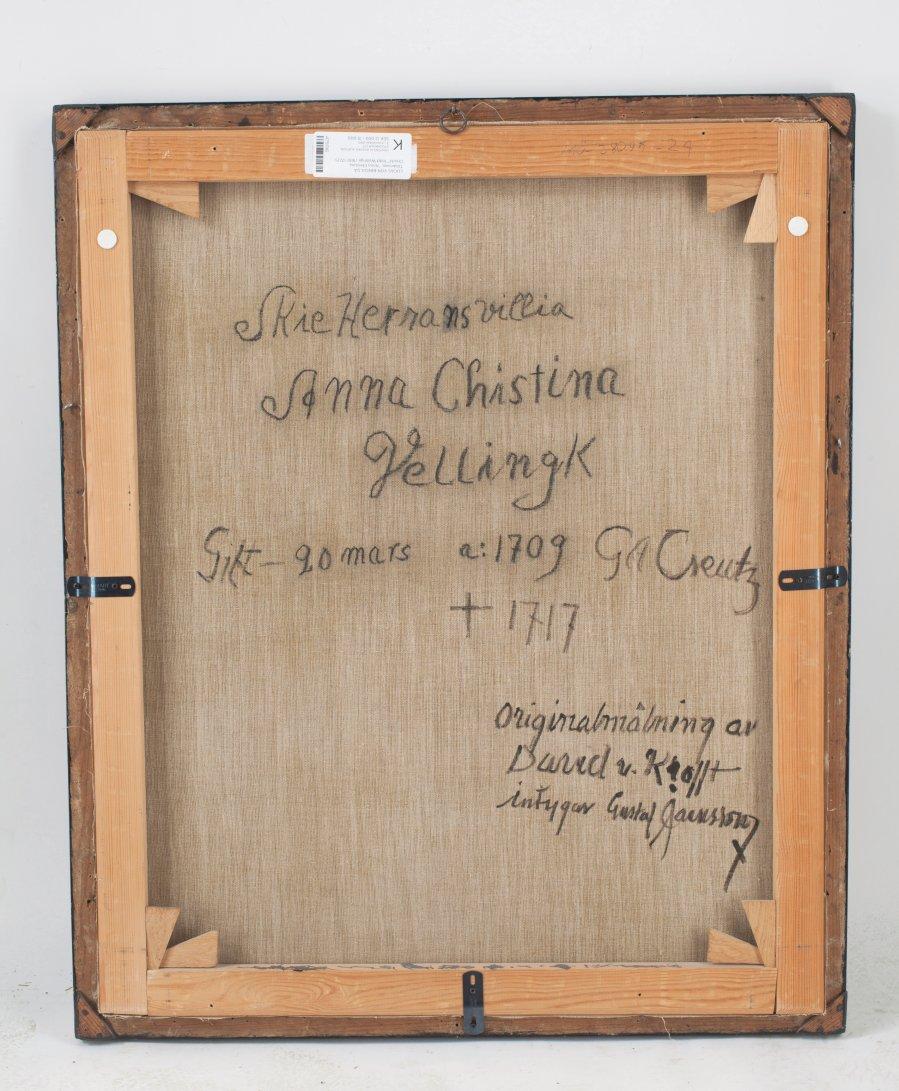 Skie Herransvillia
Anna Chistina
Vellingk
Gift - 20 mars a: 1709 GA Creutz
† 1717
Originalmålning av
David v. Krafft
intygar Gustaf Jaensson
X
K